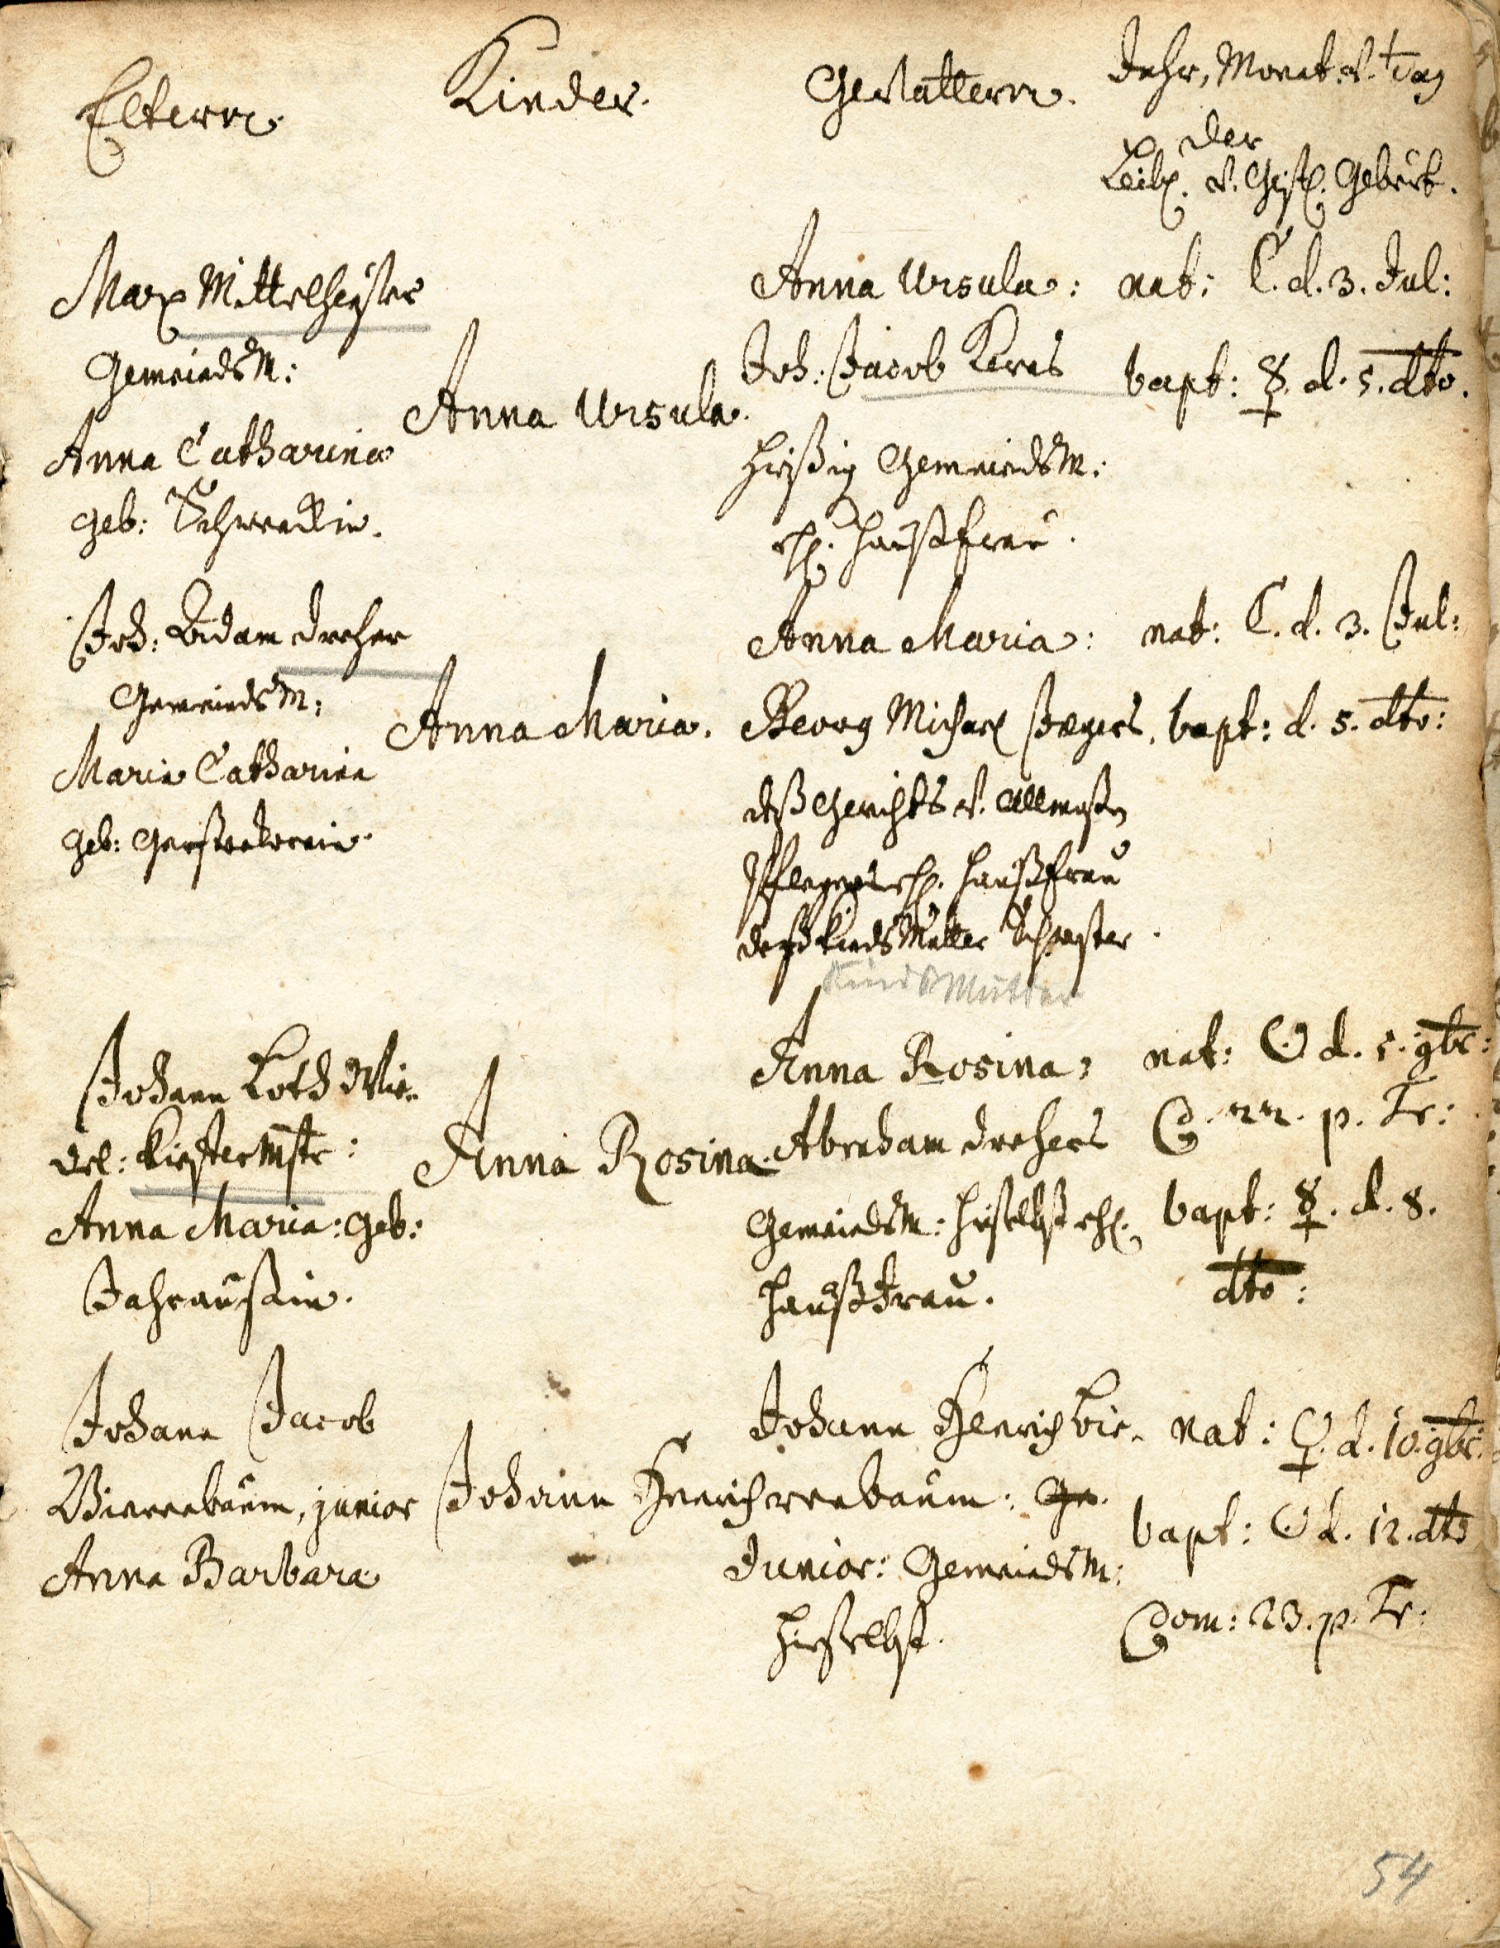 Eltern.
Kinder.
Gevattern.
Jahr, Monat u. Tag
der
Leibl. u. Geistl. Geburt.
Marx Mittelheuser
GemeindsM:
Anna Catharina
geb: Schwedlin.
Anna Ursula.
Anna Ursula:
Joh: Jacob Kerns
hießig GemeindsM:
ehl. Haußfrau.
nat: ☾. d. 3. Jul:
bapt: ☿. d. 5. dto.
Joh: Adam Dreher
GemeindsM:
Maria Catharina
geb:
Anna Maria.
Anna Maria:
Georg Michael Jægers,
deß Gerichts u. Allmoßen
Pflegers ehl. Haußfrau
deß KindsMutter Schwester.
KindsMutter
nat: ☾. d. 3. Jul:
bapt: d. 5. dto:
Johann Loth Wie-
del: KiefterMstr:
Anna Maria: geb:
Jahraußin.
Anna Rosina.
Anna Rosina:
Abraham Drehers
GemeindsM: hieselbst ehl.
HaußFrau.
nat: ☉ d. 5. 9br:
D. 22. p. Tr:
bapt: ☿. d. 8.
dto:
Johann Jacob
Bierenbaum, junior
Anna Barbara
Johann Henrich
Johann Henrich Bie-
renbaum:
Junior: GemeindsM:
hieselbst.
nat: ♀. d. 10. 9br:
bapt: ☉ d. 12. dto
Dom: 23. p. Tr:
54